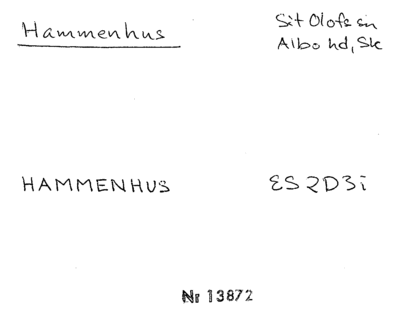 Hammenhus
Sit Olofs sn
Albo hd, Sk
HAMMENHUS
ES 2D3i
Nr 13872